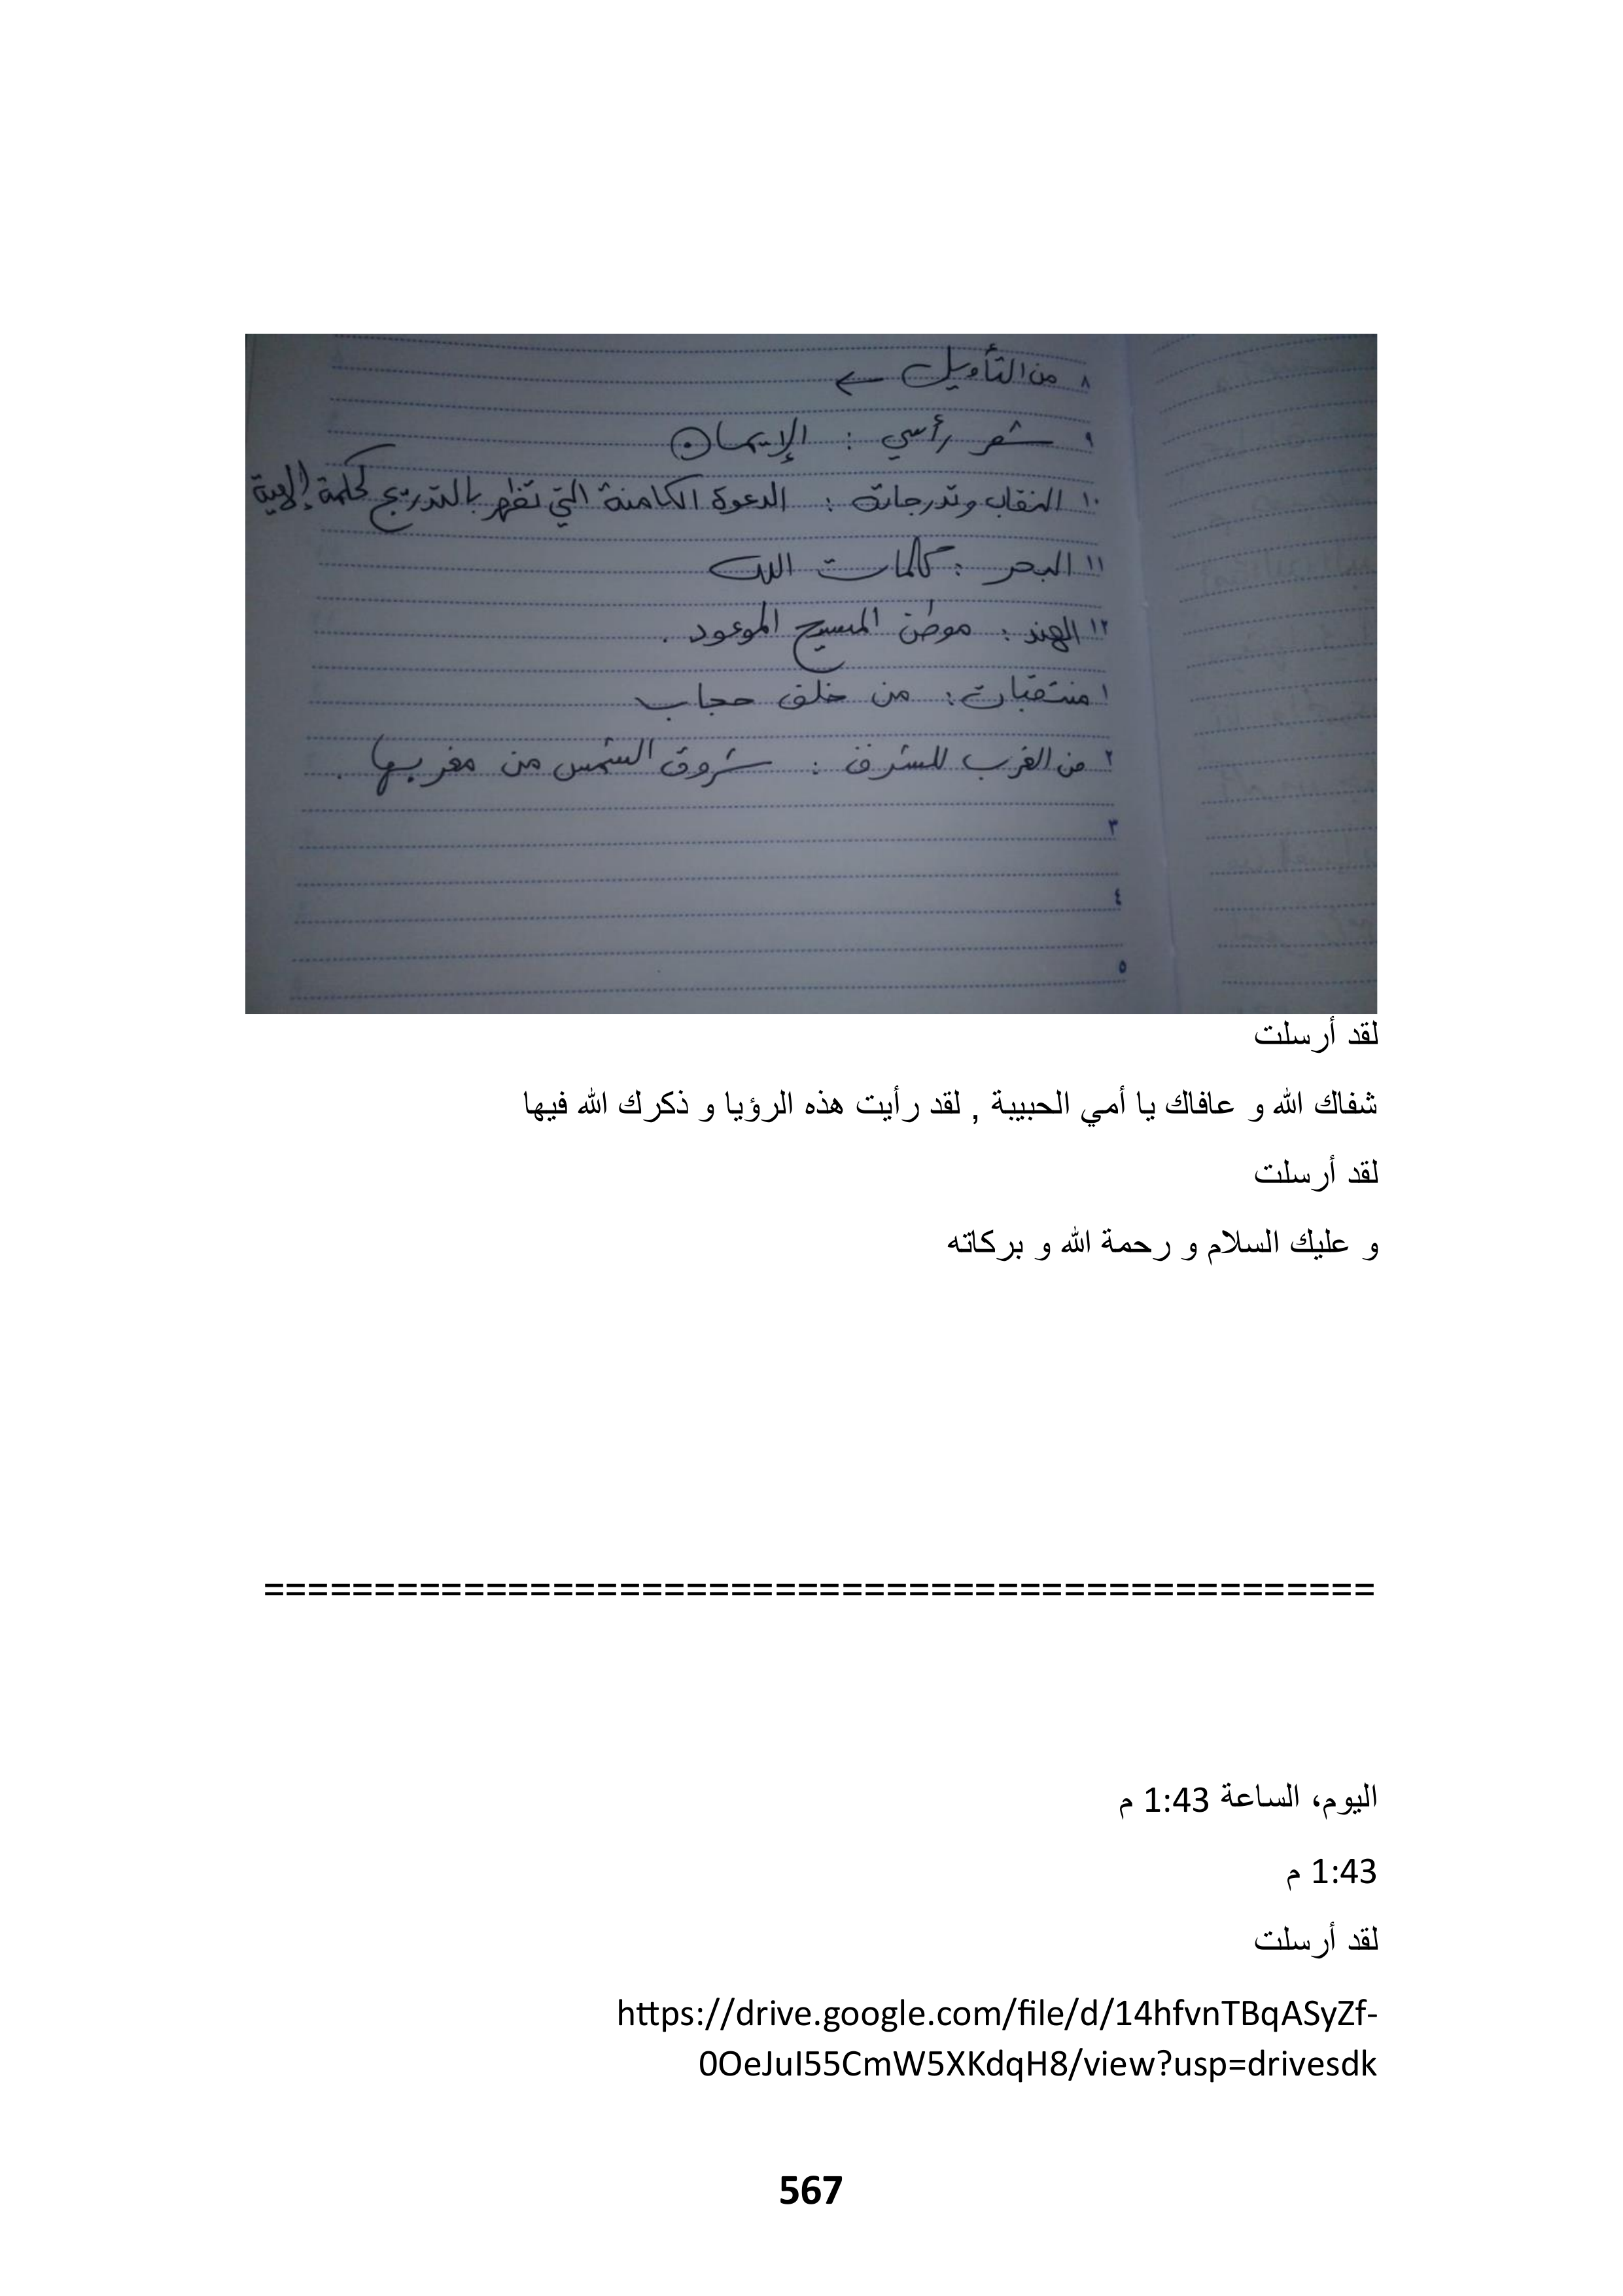 ٨ من التأويل ←
٩ شعر رأسي : الإيمان
١٠ النقاب وتدرجاته : الدعوة الكامنة التي تظهر بالتدريج كحكمة إلهية
١١ البحر : كلمات الله
١٢ الهند : موطن المسيح الموعود .
١ منتقبات : من خلف حجاب
٢ من الغرب للشرق : شروق الشمس من مغربها .
٣
٤
٥
لقد أرسلت
شفاك الله و عافاك يا أمي الحبيبة , لقد رأيت هذه الرؤيا و ذكرك الله فيها
لقد أرسلت
و عليك السلام و رحمة الله و بركاته
==================================================
اليوم، الساعة 1:43 م
1:43 م
لقد أرسلت
https://drive.google.com/file/d/14hfvnTBqASyZf-
0OeJuI55CmW5XKdqH8/view?usp=drivesdk
567